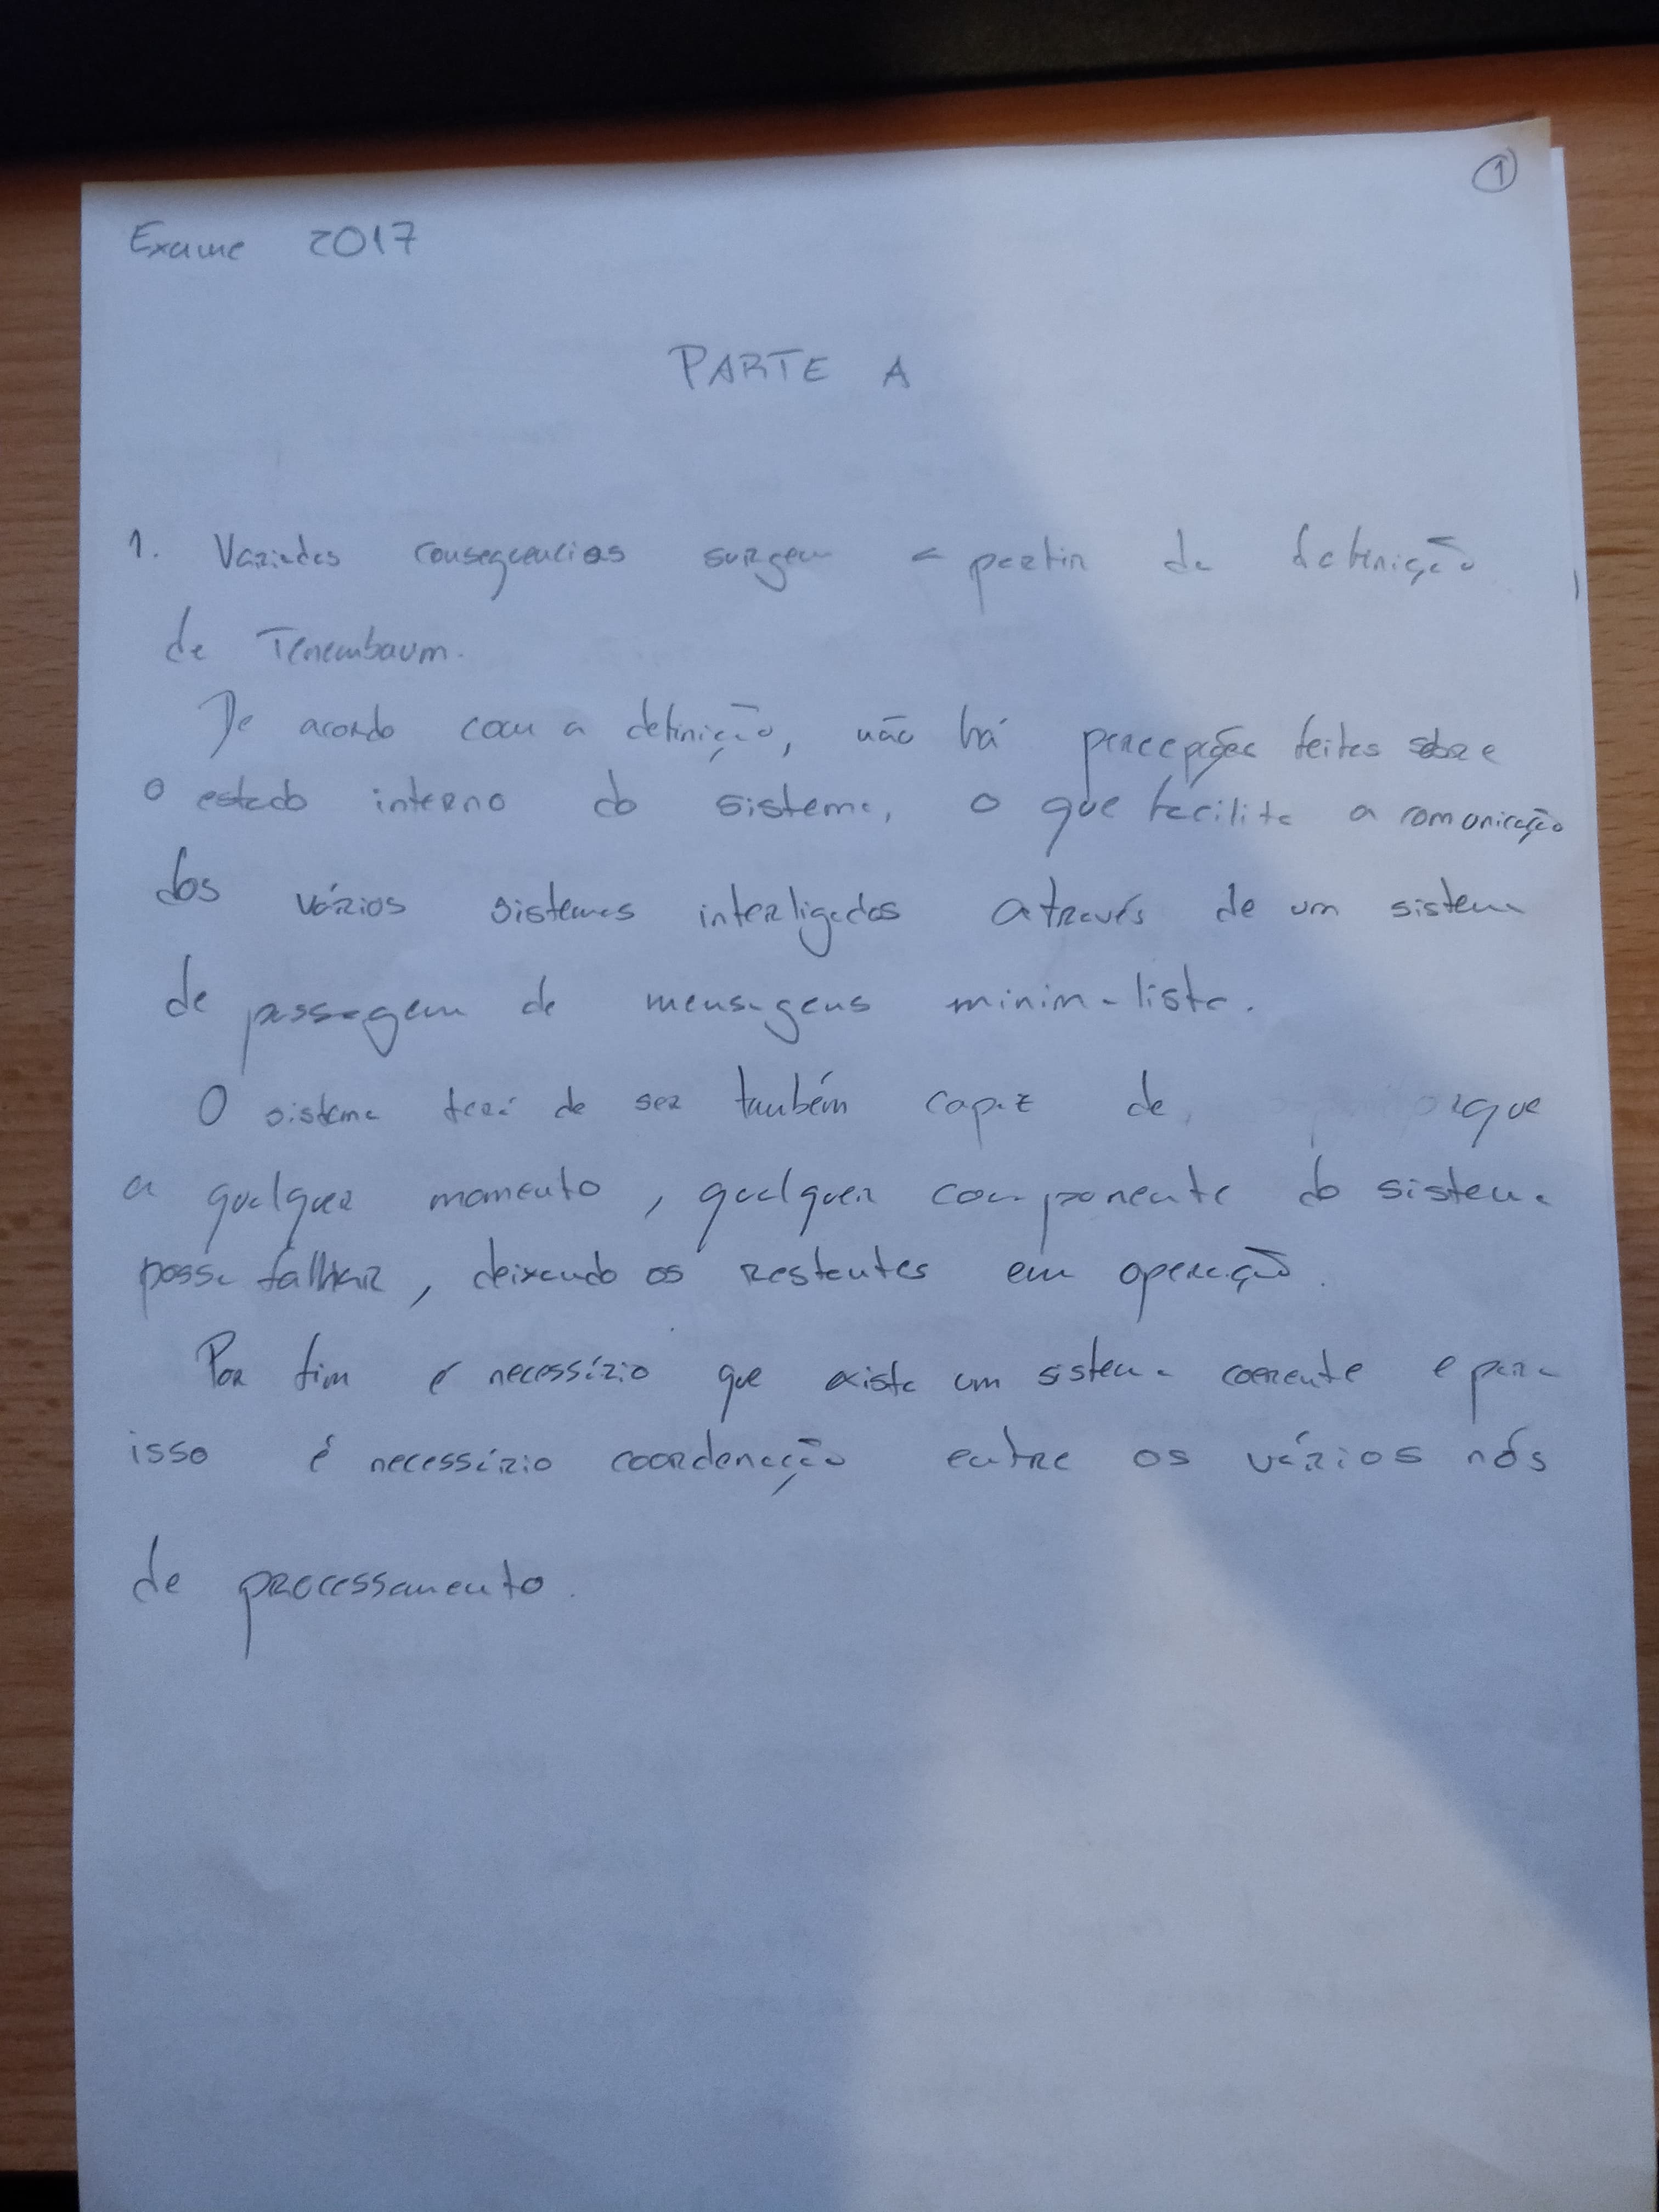 1
Exame 2017
PARTE A
1. Variadas consequencias surgem a partir da definição
de Tenembaum.
De acordo com a definição, não há percepções feitas sobre
o estado interno do sistema, o que facilita a comonicação
dos vários sistemas interligados através de um sistema
de passagem de mensagens minimalista.
O sistema terá de ser também capaz de
a qualquer momento, qualquer componente do sistema
possa falhar, deixando os restantes em operação.
Por fim é necessário que exista um sistema coerente e para
isso é necessário coordenação entre os vários nós
de processamento.